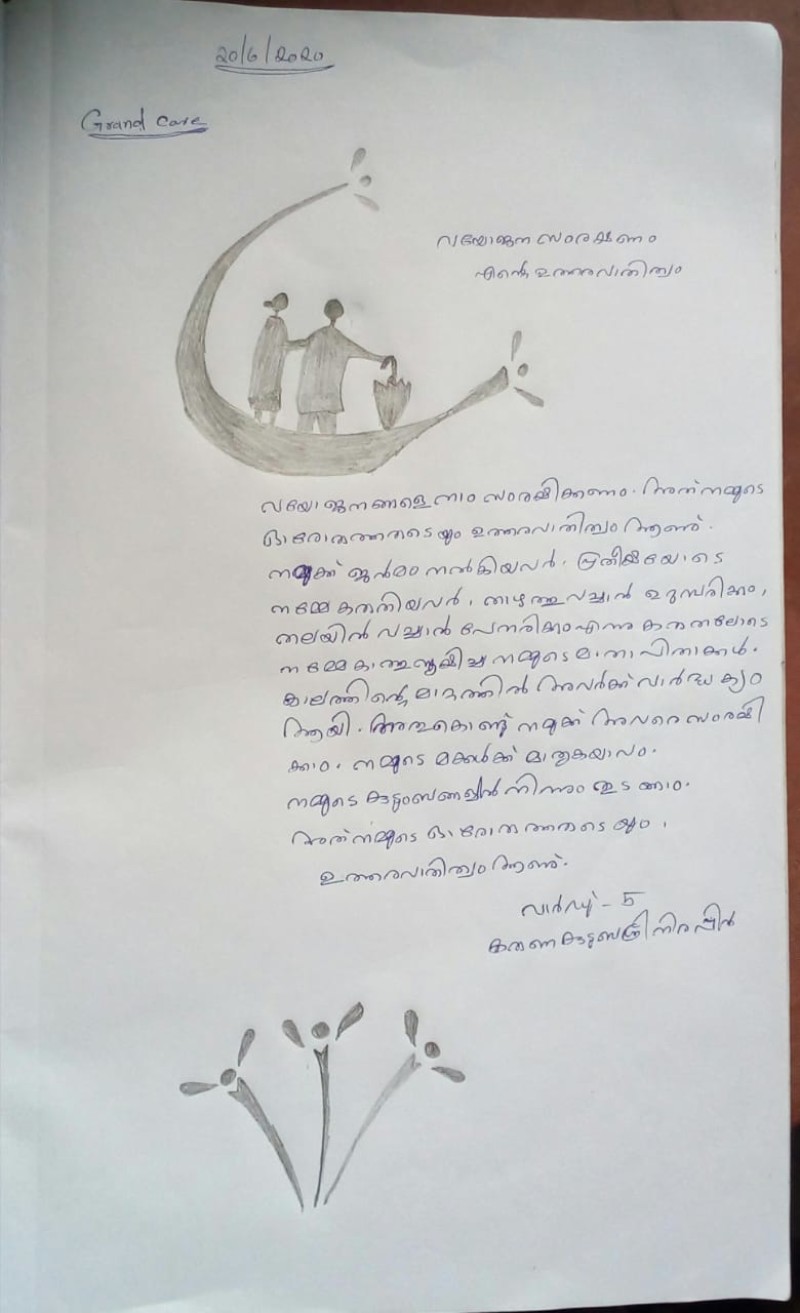 20/6/2020
Grand Care
വയോജന സംരക്ഷണം
എന്റെ ഉത്തരവാതിത്വം
വയോജനങ്ങളെ നാം സംരക്ഷിക്കണം. അത് നമ്മുടെ
ഓരോരുത്തരുടെയും ഉത്തരവാതിത്വം ആണ്.
നമുക്ക് ജൻമം നൽകിയവർ. പ്രതീക്ഷയോടെ
നമ്മേ കരുതിയവർ. താഴത്തുവച്ചാൽ ഉറുമ്പരിക്കും,
തലയിൽ വച്ചാൽ പേനരിക്കും എന്ന കരുതലോടെ
നമ്മേ കാത്തുസൂക്ഷിച്ച നമ്മുടെ മാതാപിതാക്കൾ.
കാലത്തിന്റെ മാറ്റത്തിൽ അവർക്ക് വാർദ്ധക്യം
ആയി. അതുകൊണ്ട് നമുക്ക് അവരെ സംരക്ഷി
ക്കാം. നമ്മുടെ മക്കൾക്ക് മാതൃകയാവാം.
നമ്മുടെ കുടുംബങ്ങളിൽ നിന്നും തുടങ്ങാം.
അത് നമ്മുടെ ഓരോരുത്തരുടെയും,
ഉത്തരവാതിത്വം ആണ്.
വാർഡ് - 5
കരുണ കുടുബശ്രീ നിരപ്പിൽ